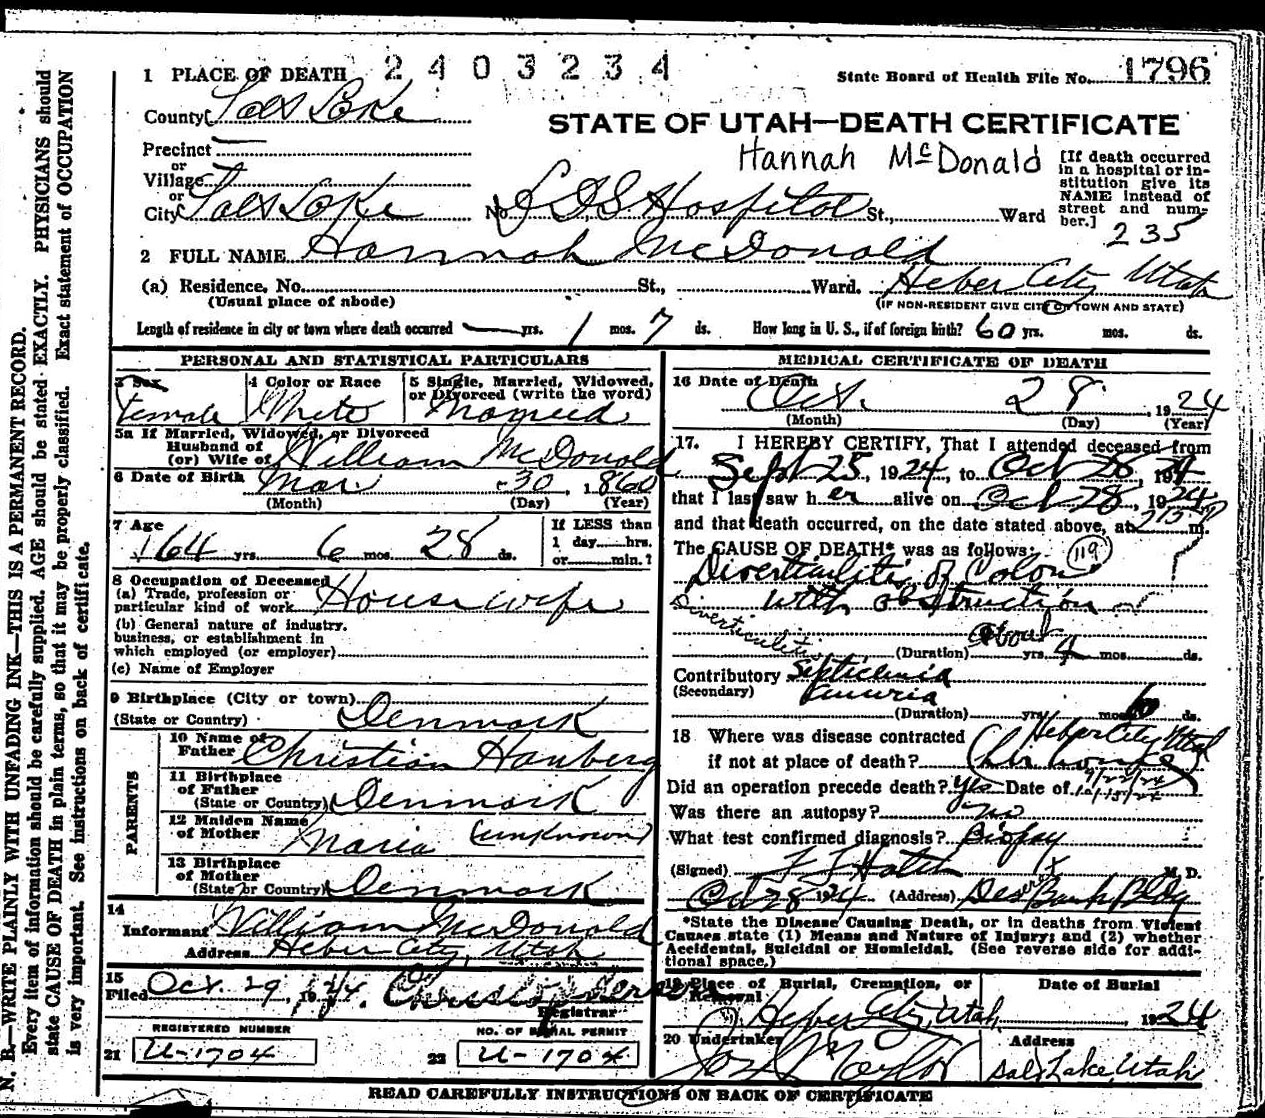 N. B.—WRITE PLAINLY WITH UNFADING INK—THIS IS A PERMANENT RECORD.
Every item of information should be carefully supplied. AGE should be stated EXACTLY. PHYSICIANS should
state CAUSE OF DEATH in plain terms, so that it may be properly classified. Exact statement of OCCUPATION
is very important. See instructions on back of certificate.
1 PLACE OF DEATH 2403234
State Board of Health File No. 1796
County Salt Lake
STATE OF UTAH—DEATH CERTIFICATE
Precinct
Hannah McDonald
or
Village
or
City Salt Lake No. LDS Hospital St., Ward
[If death occurred
in a hospital or in-
stitution give its
NAME instead of
street and num-
ber.]
235
2 FULL NAME Hannah McDonald
(a) Residence, No. St., Ward. Heber City Utah
(Usual place of abode) (IF NON-RESIDENT GIVE CITY OR TOWN AND STATE)
Length of residence in city or town where death occurred — yrs. 1 mos. 7 ds. How long in U. S., if of foreign birth? 60 yrs. mos. ds.
PERSONAL AND STATISTICAL PARTICULARS
3 Sex
Female
4 Color or Race
White
5 Single, Married, Widowed,
or Divorced (write the word)
Married
5a If Married, Widowed, or Divorced
Husband of
(or) Wife of William McDonald
6 Date of Birth Mar. 30, 1860
(Month) (Day) (Year)
7 Age
64 yrs. 6 mos. 28 ds.
If LESS than
1 day hrs.
or min.?
8 Occupation of Deceased
(a) Trade, profession or
particular kind of work Housewife
(b) General nature of industry,
business, or establishment in
which employed (or employer)
(c) Name of Employer
9 Birthplace (City or town)
(State or Country) Denmark
PARENTS
10 Name of
Father Christian Hanberg
11 Birthplace
of Father
(State or Country) Denmark
12 Maiden Name
of Mother Maria (unknown)
13 Birthplace
of Mother
(State or Country) Denmark
14
Informant William McDonald
Address Heber City, Utah
15
Filed Oct. 29, 1924.
Registrar
REGISTERED NUMBER
21 U-1704
NO. OF BURIAL PERMIT
22 U-1704
MEDICAL CERTIFICATE OF DEATH
16 Date of Death
Oct. 28, 1924
(Month) (Day) (Year)
17. I HEREBY CERTIFY, That I attended deceased from
Sept 25, 1924, to Oct 28, 1924
that I last saw her alive on Oct 28, 1924
and that death occurred, on the date stated above, at m.
The CAUSE OF DEATH* was as follows: 119
Diverticulitis of Colon
with obstruction
Diverticulitis
about
(Duration) yrs. 4 mos. ds.
Contributory Septicemia
(Secondary) Anuria
(Duration) yrs. mos. 6 ds.
18 Where was disease contracted Heber City Utah
if not at place of death? home
Did an operation precede death? Yes Date of 9/22/24
10/15/24
Was there an autopsy? no
What test confirmed diagnosis? Biopsy
(Signed) M. D.
Oct 28 1924 (Address) Des Bank Bldg
*State the Disease Causing Death, or in deaths from Violent
Causes state (1) Means and Nature of Injury; and (2) whether
Accidental, Suicidal or Homicidal. (See reverse side for addi-
tional space.)
19 Place of Burial, Cremation, or
Removal
Heber City, Utah
Date of Burial
1924
20 Undertaker
Taylor
Address
Salt Lake, Utah
READ CAREFULLY INSTRUCTIONS ON BACK OF CERTIFICATE